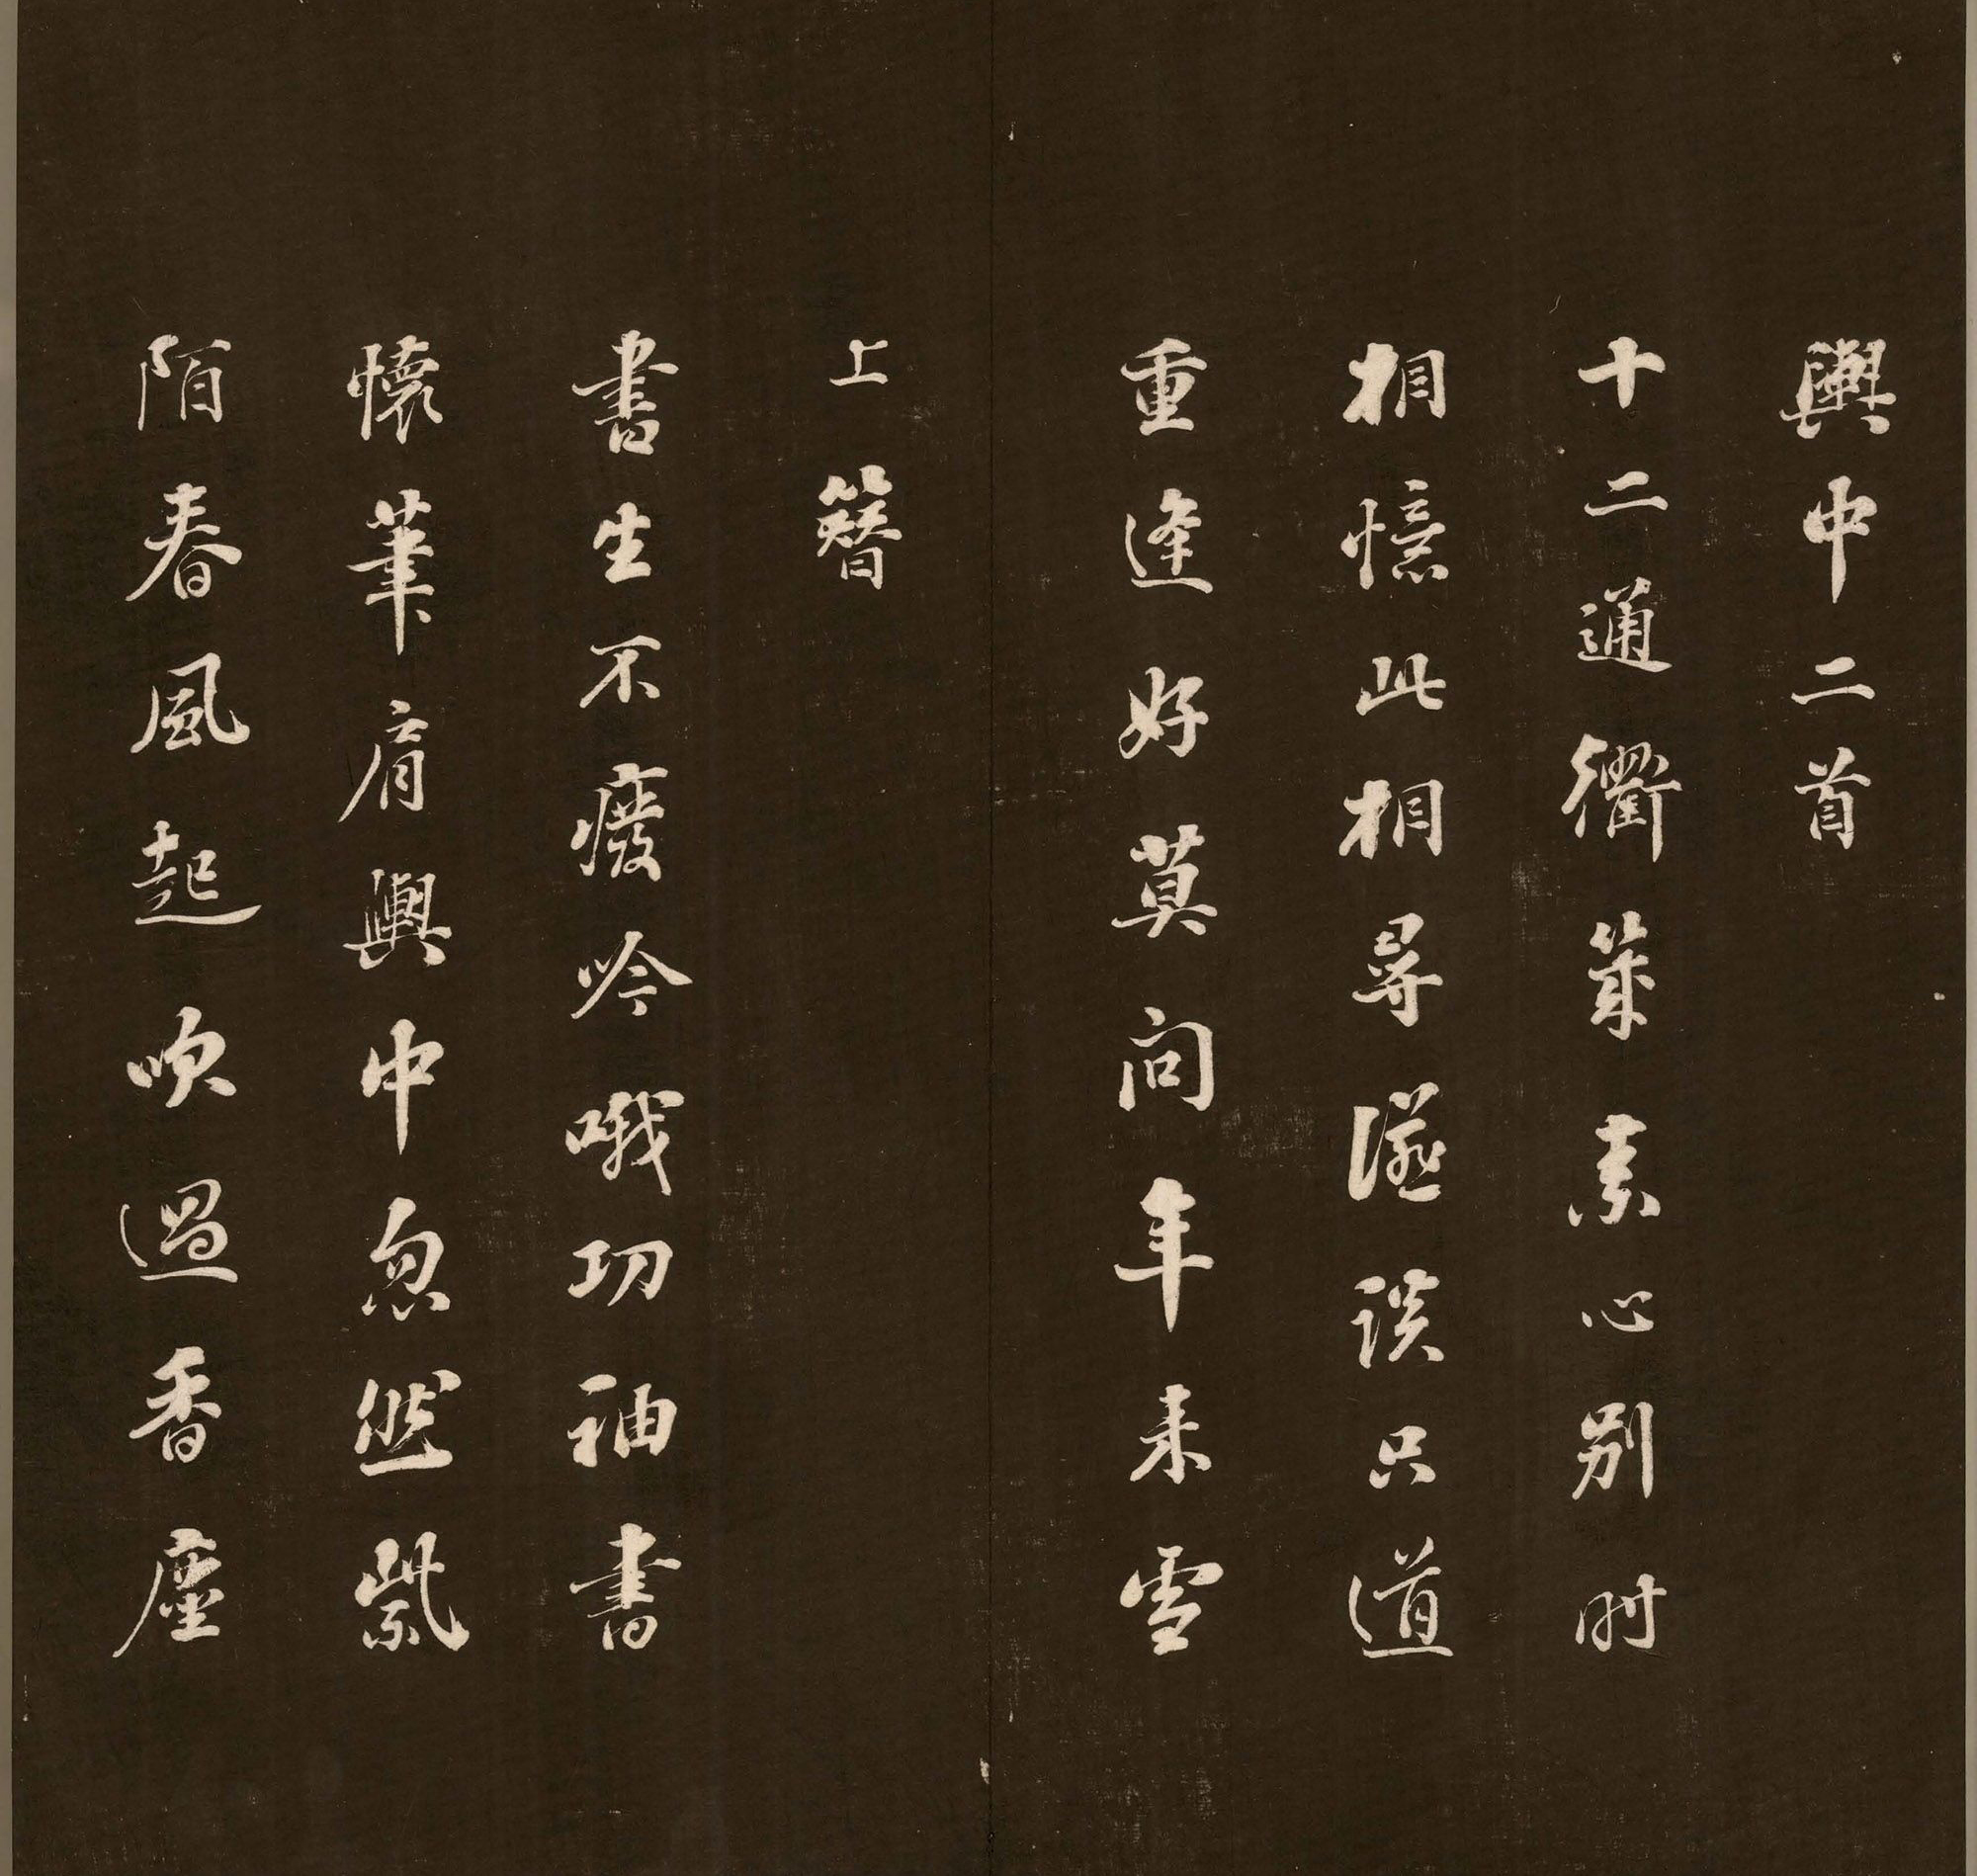 輿中二首
十二通衢策素心別时
相憶此相尋談只道
重逢好莫问年来雪
上簪
書生不癈吟哦功袖書
懷筆肩輿中忽然紫
陌春風起吹過香塵